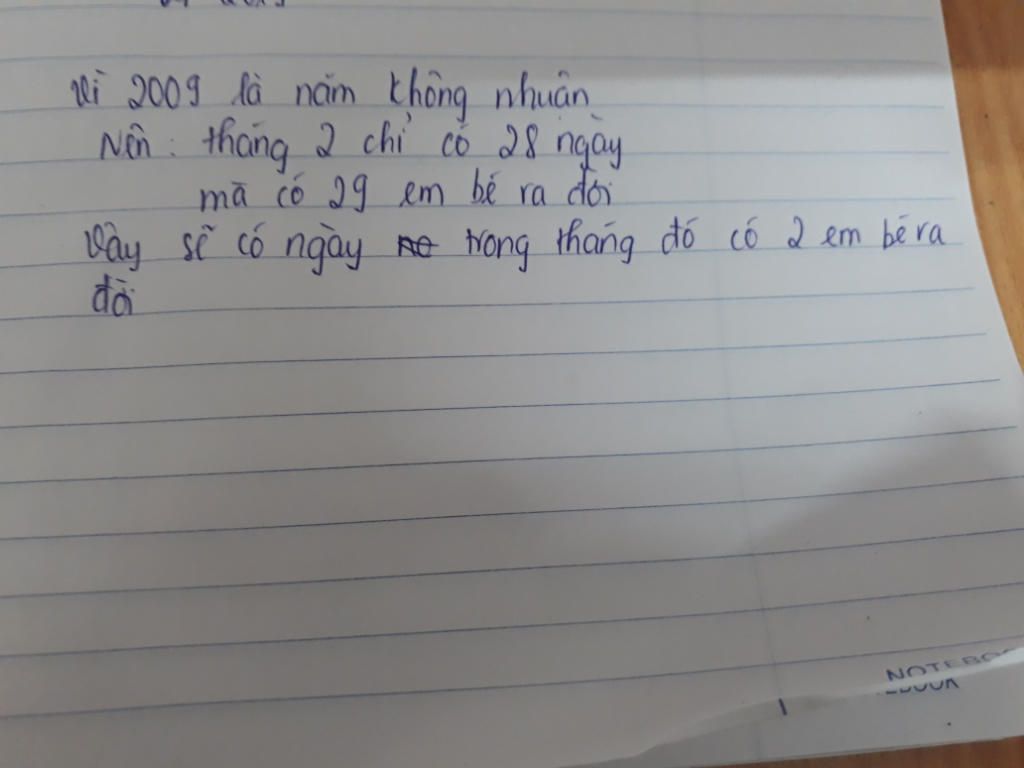 Vì 2009 là năm không nhuận
Nên : tháng 2 chỉ có 28 ngày
mà có 29 em bé ra đời
Vậy sẽ có ngày trong tháng đó có 2 em bé ra
đời
NOTEBOO
EBOOK